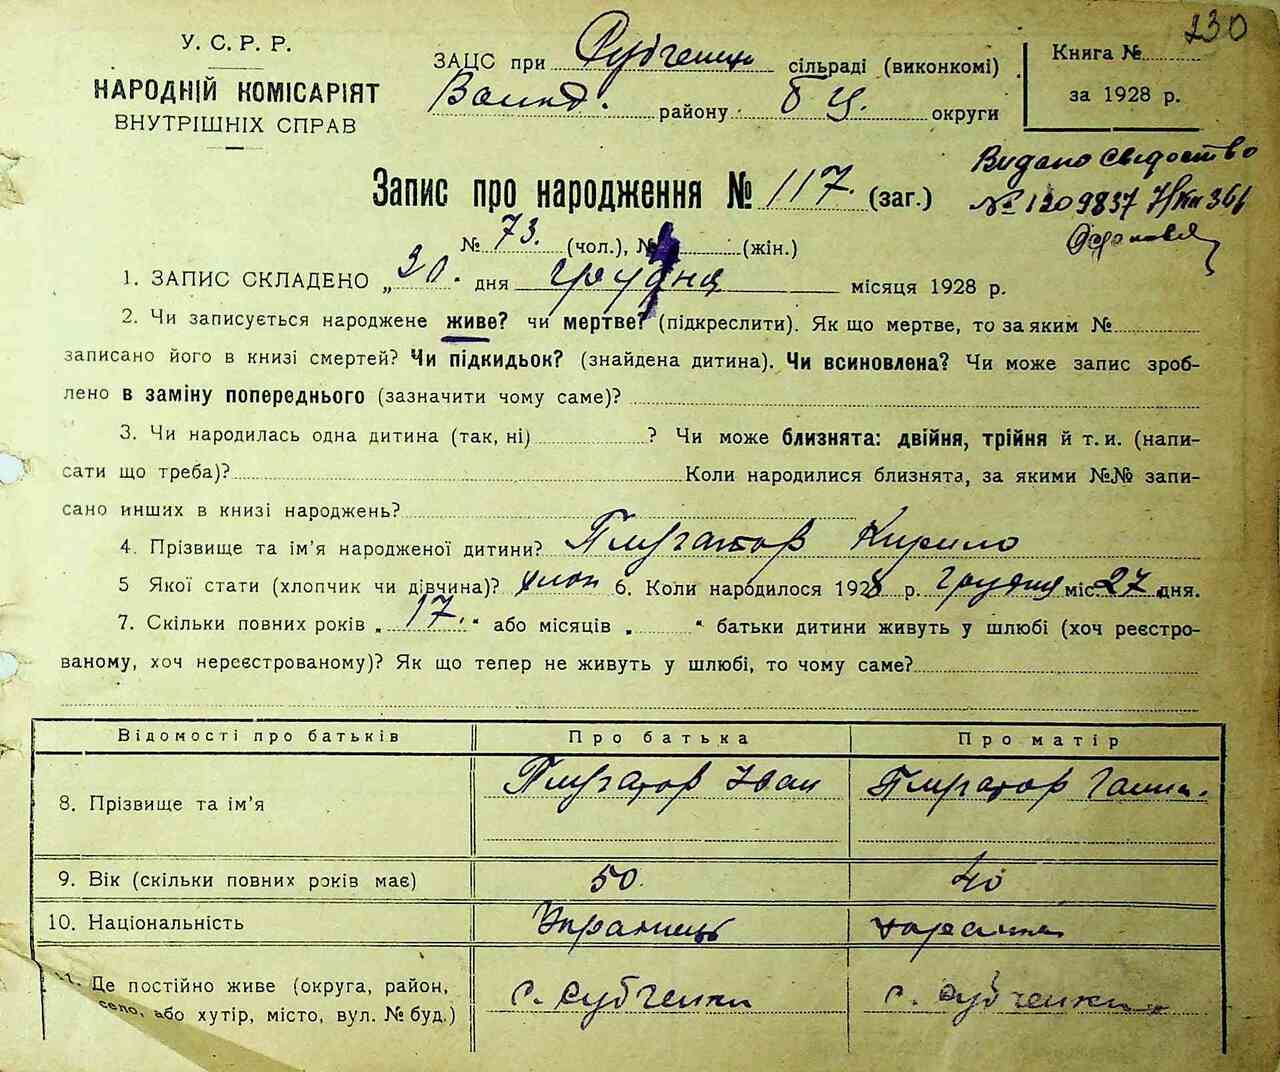 230
У. С. Р. Р.
НАРОДНІЙ КОМІСАРІЯТ
ВНУТРІШНІХ СПРАВ
ЗАЦС при сільраді (виконкомі)
району Б Ц. округи
Книга №
за 1928 р.
Видано Свідоство
№ 1209837
Запис про народження № 117. (заг.)
№ 73. (чол.), № (жін.)
1. ЗАПИС СКЛАДЕНО „30" дня грудня місяця 1928 р.
2. Чи записується народжене живе? чи мертве? (підкреслити). Як що мертве, то за яким №
записано його в книзі смертей? Чи підкидьок? (знайдена дитина). Чи всиновлена? Чи може запис зроб-
лено в заміну попереднього (зазначити чому саме)?
3. Чи народилась одна дитина (так, ні) ? Чи може близнята: двійня, трійня й т. и. (напи-
сати що треба)? Коли народилися близнята, за якими №№ запи-
сано инших в книзі народжень?
4. Прізвище та ім'я народженої дитини? Плугатор Кирило
5 Якої стати (хлопчик чи дівчина)? хлоп 6. Коли народилося 1928 р. грудня міс. 27 дня.
7. Скільки повних років „17." або місяців „ " батьки дитини живуть у шлюбі (хоч реєстро-
ваному, хоч нереєстрованому)? Як що тепер не живуть у шлюбі, то чому саме?
Відомості про батьків Про батька Про матір
8. Прізвище та ім'я Плугатор Іван Плугатор Ганна.
9. Вік (скільки повних років має) 50. 40
10. Національність Українець українка
11. Де постійно живе (округа, район, с. Рубченки с. Рубченки
село, або хутір, місто, вул. № буд.)